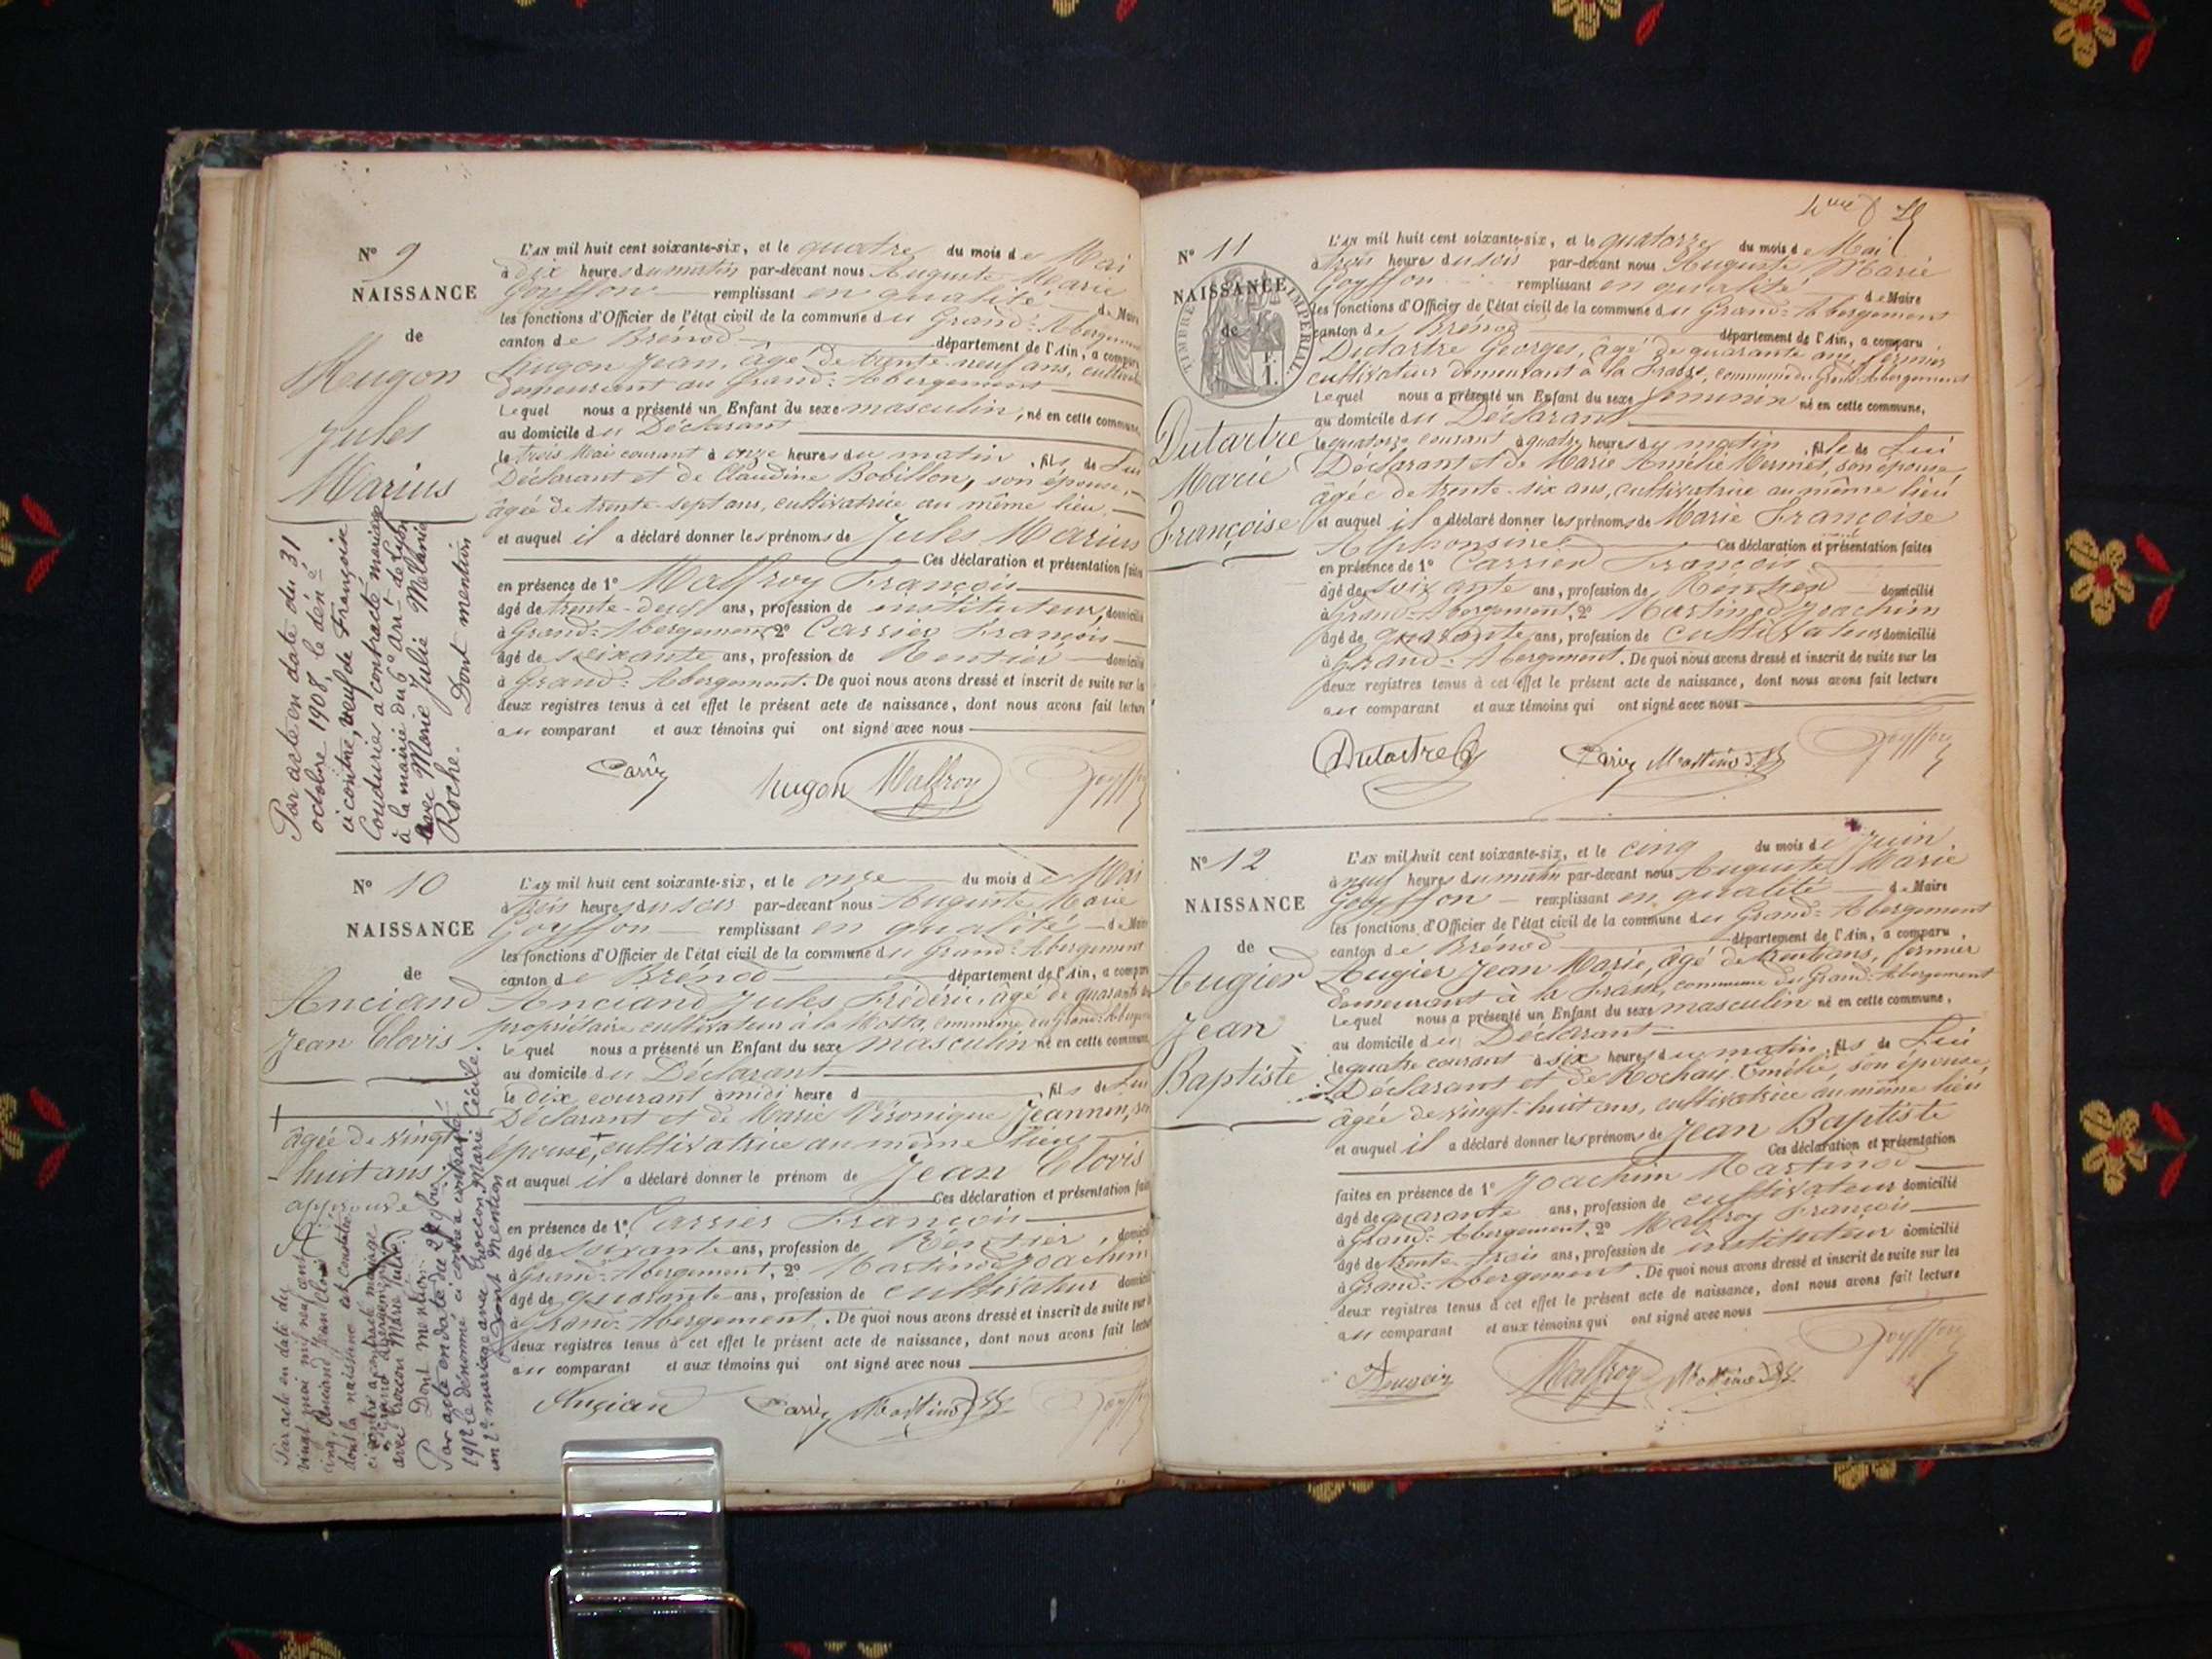 N° 9
NAISSANCE
de
Hugon
Jules
Marius
Par acte en date du 31
octobre 1908, le dén é
ci contre, veuf de Françoise
Coudurier a contracté mariage
à la mairie du 6e arrt de Lyon
avec Marie Julie Mélanie
Roche. Dont mention
L'AN mil huit cent soixante-six, et le quatre du mois de Mai
à dix heures du matin par-devant nous Auguste Marie
Goyffon remplissant en qualité de Maire
les fonctions d'Officier de l'état civil de la commune du Grand-Abergement
canton de Brénod département de l'Ain, a comparu
Hugon Jean, âgé de trente-neuf ans, cultivateur
demeurant au Grand-Abergement
Lequel nous a présenté un Enfant du sexe masculin, né en cette commune,
au domicile du Déclarant
le trois Mai courant à onze heures du matin, fils de Lui
Déclarant et de Claudine Bobillon, son épouse,
âgée de trente-sept ans, cultivatrice au même lieu,
et auquel il a déclaré donner les prénoms de Jules Marius
Ces déclaration et présentation faites
en présence de 1° Malfroy François
âgé de trente-deux ans, profession de instituteur, domicilié
à Grand-Abergement, 2° Carrier François
âgé de soixante ans, profession de Rentier domicilié
à Grand-Abergement. De quoi nous avons dressé et inscrit de suite sur les
deux registres tenus à cet effet le présent acte de naissance, dont nous avons fait lecture
au comparant et aux témoins qui ont signé avec nous
Carrier Hugon Malfroy Goyffon
N° 10
NAISSANCE
de
Anciand
Jean Clovis
+
âgée de vingt
huit ans
approuvé
Par acte en date du
vingt mai mil neuf cent
cinq, Anciand Jean Clovis
dont la naissance est constatée
ci contre a contracté mariage
à Grand Abergement
avec Brocon Marie Julie
Dont mention
Par acte en date du 28 9bre
1912 le dénommé ci contre a contracté
un 2e mariage avec Brocon Marie Cécile.
Dont mention
L'AN mil huit cent soixante-six, et le onze du mois de Mai
à trois heures du soir par-devant nous Auguste Marie
Goyffon remplissant en qualité de Maire
les fonctions d'Officier de l'état civil de la commune du Grand-Abergement
canton de Brénod département de l'Ain, a comparu
Anciand Jules Frédéric âgé de quarante ans
propriétaire cultivateur à la Motta, commune du Grand-Abergement
lequel nous a présenté un Enfant du sexe masculin né en cette commune,
au domicile du Déclarant
le dix courant à midi heure d , fils de Lui
Déclarant et de Marie Véronique Jeannin, son
épouse,+ cultivatrice au même lieu
et auquel il a déclaré donner le prénom de Jean Clovis
Ces déclaration et présentation faites
en présence de 1° Carrier François
âgé de soixante ans, profession de Rentier domicilié
à Grand-Abergement, 2° Martinod Joachim
âgé de quarante ans, profession de cultivateur domicilié
à Grand-Abergement. De quoi nous avons dressé et inscrit de suite sur les
deux registres tenus à cet effet le présent acte de naissance, dont nous avons fait lecture
au comparant et aux témoins qui ont signé avec nous
Ancian Carrier Martinod Goyffon
N° 11
NAISSANCE
de
TIMBRE IMPÉRIAL
1 F.
Dutartre
Marie
Françoise
L'AN mil huit cent soixante-six, et le quatorze du mois de Mai
à trois heures du soir par-devant nous Auguste Marie
Goyffon remplissant en qualité de Maire
les fonctions d'Officier de l'état civil de la commune du Grand-Abergement
canton de Brénod département de l'Ain, a comparu
Dutartre Georges, âgé de quarante ans, fermier
cultivateur demeurant à la Frasse, commune du Grand-Abergement
Lequel nous a présenté un Enfant du sexe féminin né en cette commune,
au domicile du Déclarant
le quatorze courant à quatre heures du matin, fille de Lui
Déclarant et de Marie Amélie Mermet, son épouse,
âgée de trente-six ans, cultivatrice au même lieu
et auquel il a déclaré donner les prénoms de Marie Françoise
Alphonsine Ces déclaration et présentation faites
en présence de 1° Carrier François
âgé de soixante ans, profession de Rentier domicilié
à Grand-Abergement, 2° Martinod Joachim
âgé de quarante ans, profession de cultivateur domicilié
à Grand-Abergement. De quoi nous avons dressé et inscrit de suite sur les
deux registres tenus à cet effet le présent acte de naissance, dont nous avons fait lecture
au comparant et aux témoins qui ont signé avec nous
Dutartre G Carrier Martinod Goyffon
N° 12
NAISSANCE
de
Augier
Jean
Baptiste
L'AN mil huit cent soixante-six, et le cinq du mois de Juin
à neuf heures du matin par-devant nous Auguste Marie
Goyffon remplissant en qualité de Maire
les fonctions d'Officier de l'état civil de la commune du Grand-Abergement
canton de Brénod département de l'Ain, a comparu
Augier Jean Marie, âgé de trente ans, fermier
demeurant à la Frasse, commune du Grand-Abergement
Lequel nous a présenté un Enfant du sexe masculin né en cette commune,
au domicile du Déclarant
le quatre courant à six heures du matin, fils de Lui
Déclarant et de Rochaix Emélie, son épouse,
âgée de vingt-huit ans, cultivatrice au même lieu
et auquel il a déclaré donner les prénoms de Jean Baptiste
Ces déclaration et présentation
faites en présence de 1° Joachim Martinod
âgé de quarante ans, profession de cultivateur domicilié
à Grand-Abergement, 2° Malfroy François
âgé de trente trois ans, profession de instituteur domicilié
à Grand-Abergement. De quoi nous avons dressé et inscrit de suite sur les
deux registres tenus à cet effet le présent acte de naissance, dont nous avons fait lecture
au comparant et aux témoins qui ont signé avec nous
Augier Malfroy Martinod Goyffon